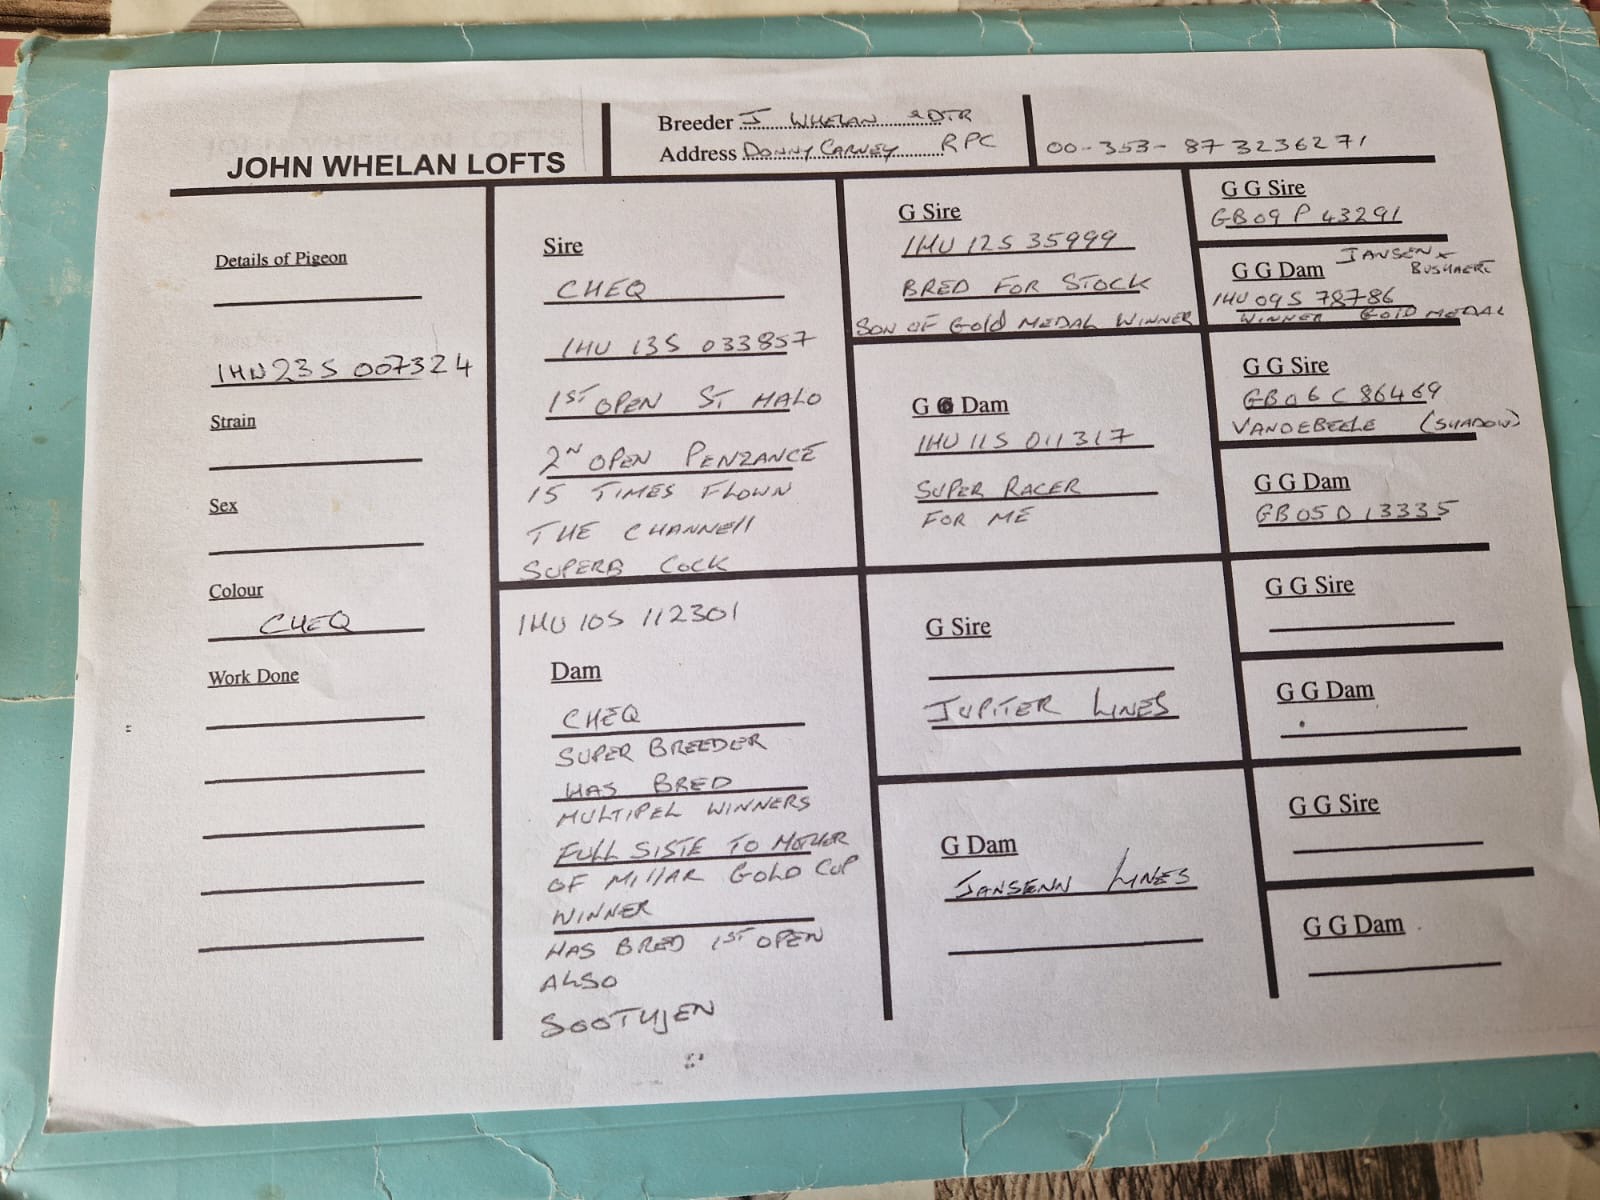 JOHN WHELAN LOFTS
Breeder J WHELAN & DTR
Address DONNYCARNEY RPC
00-353-87 3236271
Details of Pigeon
IHU 23 S 007324
Strain
Sex
Colour
CHEQ
Work Done
Sire
CHEQ
IHU 13S 033857
1ST OPEN ST MALO
2N OPEN PENZANCE
15 TIMES FLOWN
THE CHANNEll
SUPERB COCK
IHU 10S 112301
Dam
CHEQ
SUPER BREEDER
HAS BRED
MULTIPEL WINNERS
FULL SISTE TO MOTHER
OF MIllAR GOLD CUP
WINNER
HAS BRED 1ST OPEN
ALSO
G Sire
IHU 12S 35999
BRED FOR STOCK
SON OF GOld MEDAL WINNER
G G Dam
IHU 11S 011317
SUPER RACER
FOR ME
G Sire
JUPITER LINES
G Dam
JANSENN LINES
G G Sire
GB09 P 43291
G G Dam JANSEN x
BUSHAERT
IHU 09S 78786
WINNER GOlD MEDAL
G G Sire
GB06 C 86469
VANDEBEELE (SHADOW)
G G Dam
GB05D13335
G G Sire
G G Dam
G G Sire
G G Dam